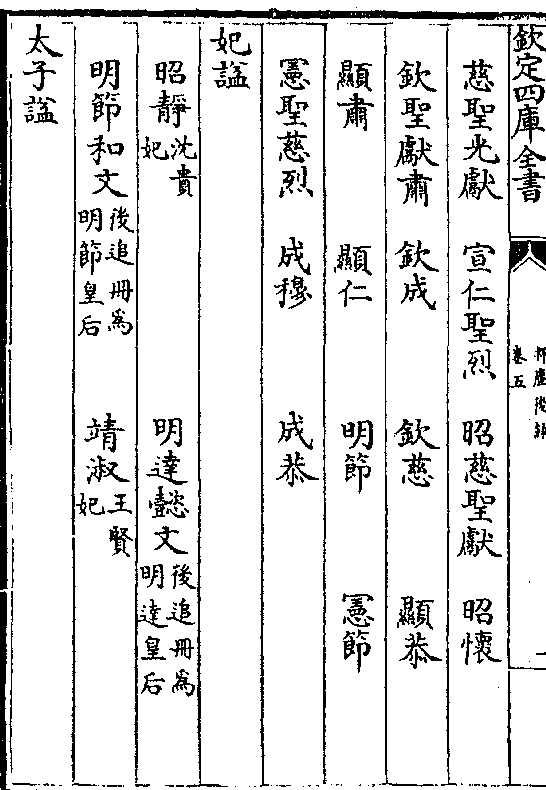 欽定四庫全書
揮麈後錄
卷五
慈聖光獻 宣仁聖烈 昭慈聖獻 昭懷
欽聖獻肅 欽成 欽慈 顯恭
顯肅 顯仁 明節 憲節
憲聖慈烈 成穆 成恭
妃諡
昭靜沈貴妃 明達懿文後追冊為明達皇后
明節和文後追冊為明節皇后 靖淑王賢妃
太子諡